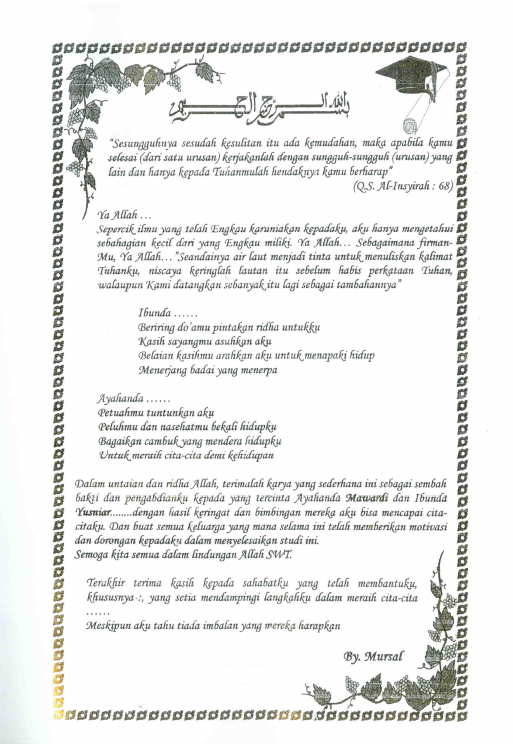 بسم الله الرحمن الرحيم
"Sesungguhnya sesudah kesulitan itu ada kemudahan, maka apabila kamu
selesai (dari satu urusan) kerjakanlah dengan sungguh-sungguh (urusan) yang
lain dan hanya kepada Tuhanmulah hendaknya kamu berharap"
(Q.S. Al-Insyirah : 68)
Ya Allah ...
Sepercik ilmu yang telah Engkau karuniakan kepadaku, aku hanya mengetahui
sebahagian kecil dari yang Engkau miliki. Ya Allah... Sebagaimana firman-
Mu, Ya Allah..."Seandainya air laut menjadi tinta untuk menuliskan kalimat
Tuhanku, niscaya keringlah lautan itu sebelum habis perkataan Tuhan,
walaupun Kami datangkan sebanyak itu lagi sebagai tambahannya"
Ibunda ......
Beriring do'amu pintakan ridha untukku
Kasih sayangmu asuhkan aku
Belaian kasihmu arahkan aku untuk menapaki hidup
Menerjang badai yang menerpa
Ayahanda ......
Petuahmu tuntunkan aku
Peluhmu dan nasehatmu bekali hidupku
Bagaikan cambuk yang mendera hidupku
Untuk meraih cita-cita demi kehidupan
Dalam untaian dan ridha Allah, terimalah karya yang sederhana ini sebagai sembah
bakti dan pengabdianku kepada yang tercinta Ayahanda Mawardi dan Ibunda
Yusniar........dengan hasil keringat dan bimbingan mereka aku bisa mencapai cita-
citaku. Dan buat semua keluarga yang mana selama ini telah memberikan motivasi
dan dorongan kepadaku dalam menyelesaikan studi ini.
Semoga kita semua dalam lindungan Allah SWT.
Terakhir terima kasih kepada sahabatku yang telah membantuku,
khususnya-:, yang setia mendampingi langkahku dalam meraih cita-cita
......
Meskipun aku tahu tiada imbalan yang mereka harapkan
By. Mursal